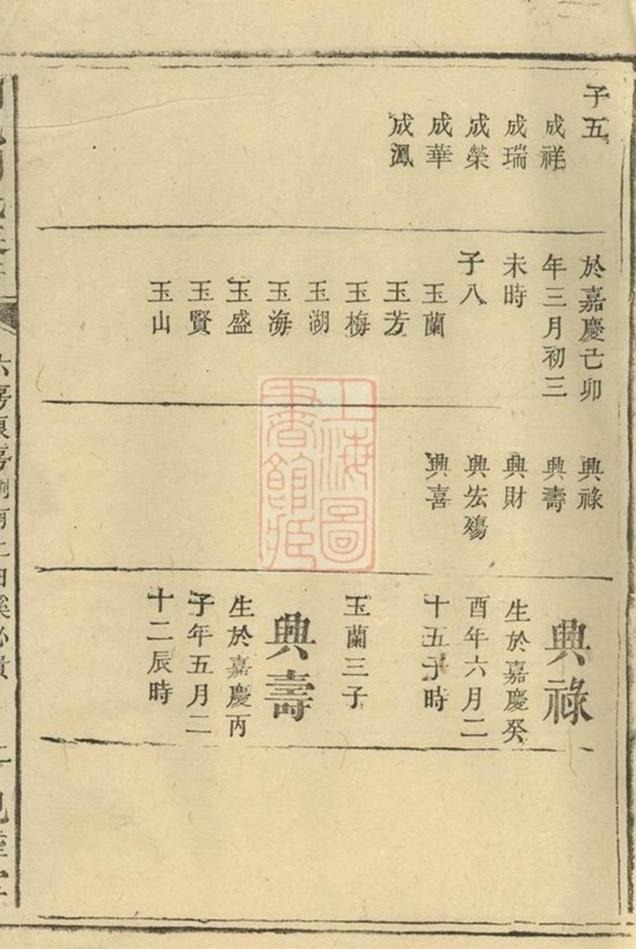 子五
成祥
成瑞
成榮
成華
成鳳
於嘉慶己卯
年三月初三
未時
子八
玉蘭
玉芳
玉梅
玉湖
玉海
玉盛
玉賢
玉山
興祿
興壽
興財
興宏殤
興喜
興祿
生於嘉慶癸
酉年六月二
十五子時
玉蘭三子
興壽
生於嘉慶丙
子年五月二
十二辰時
上海圖
書館藏